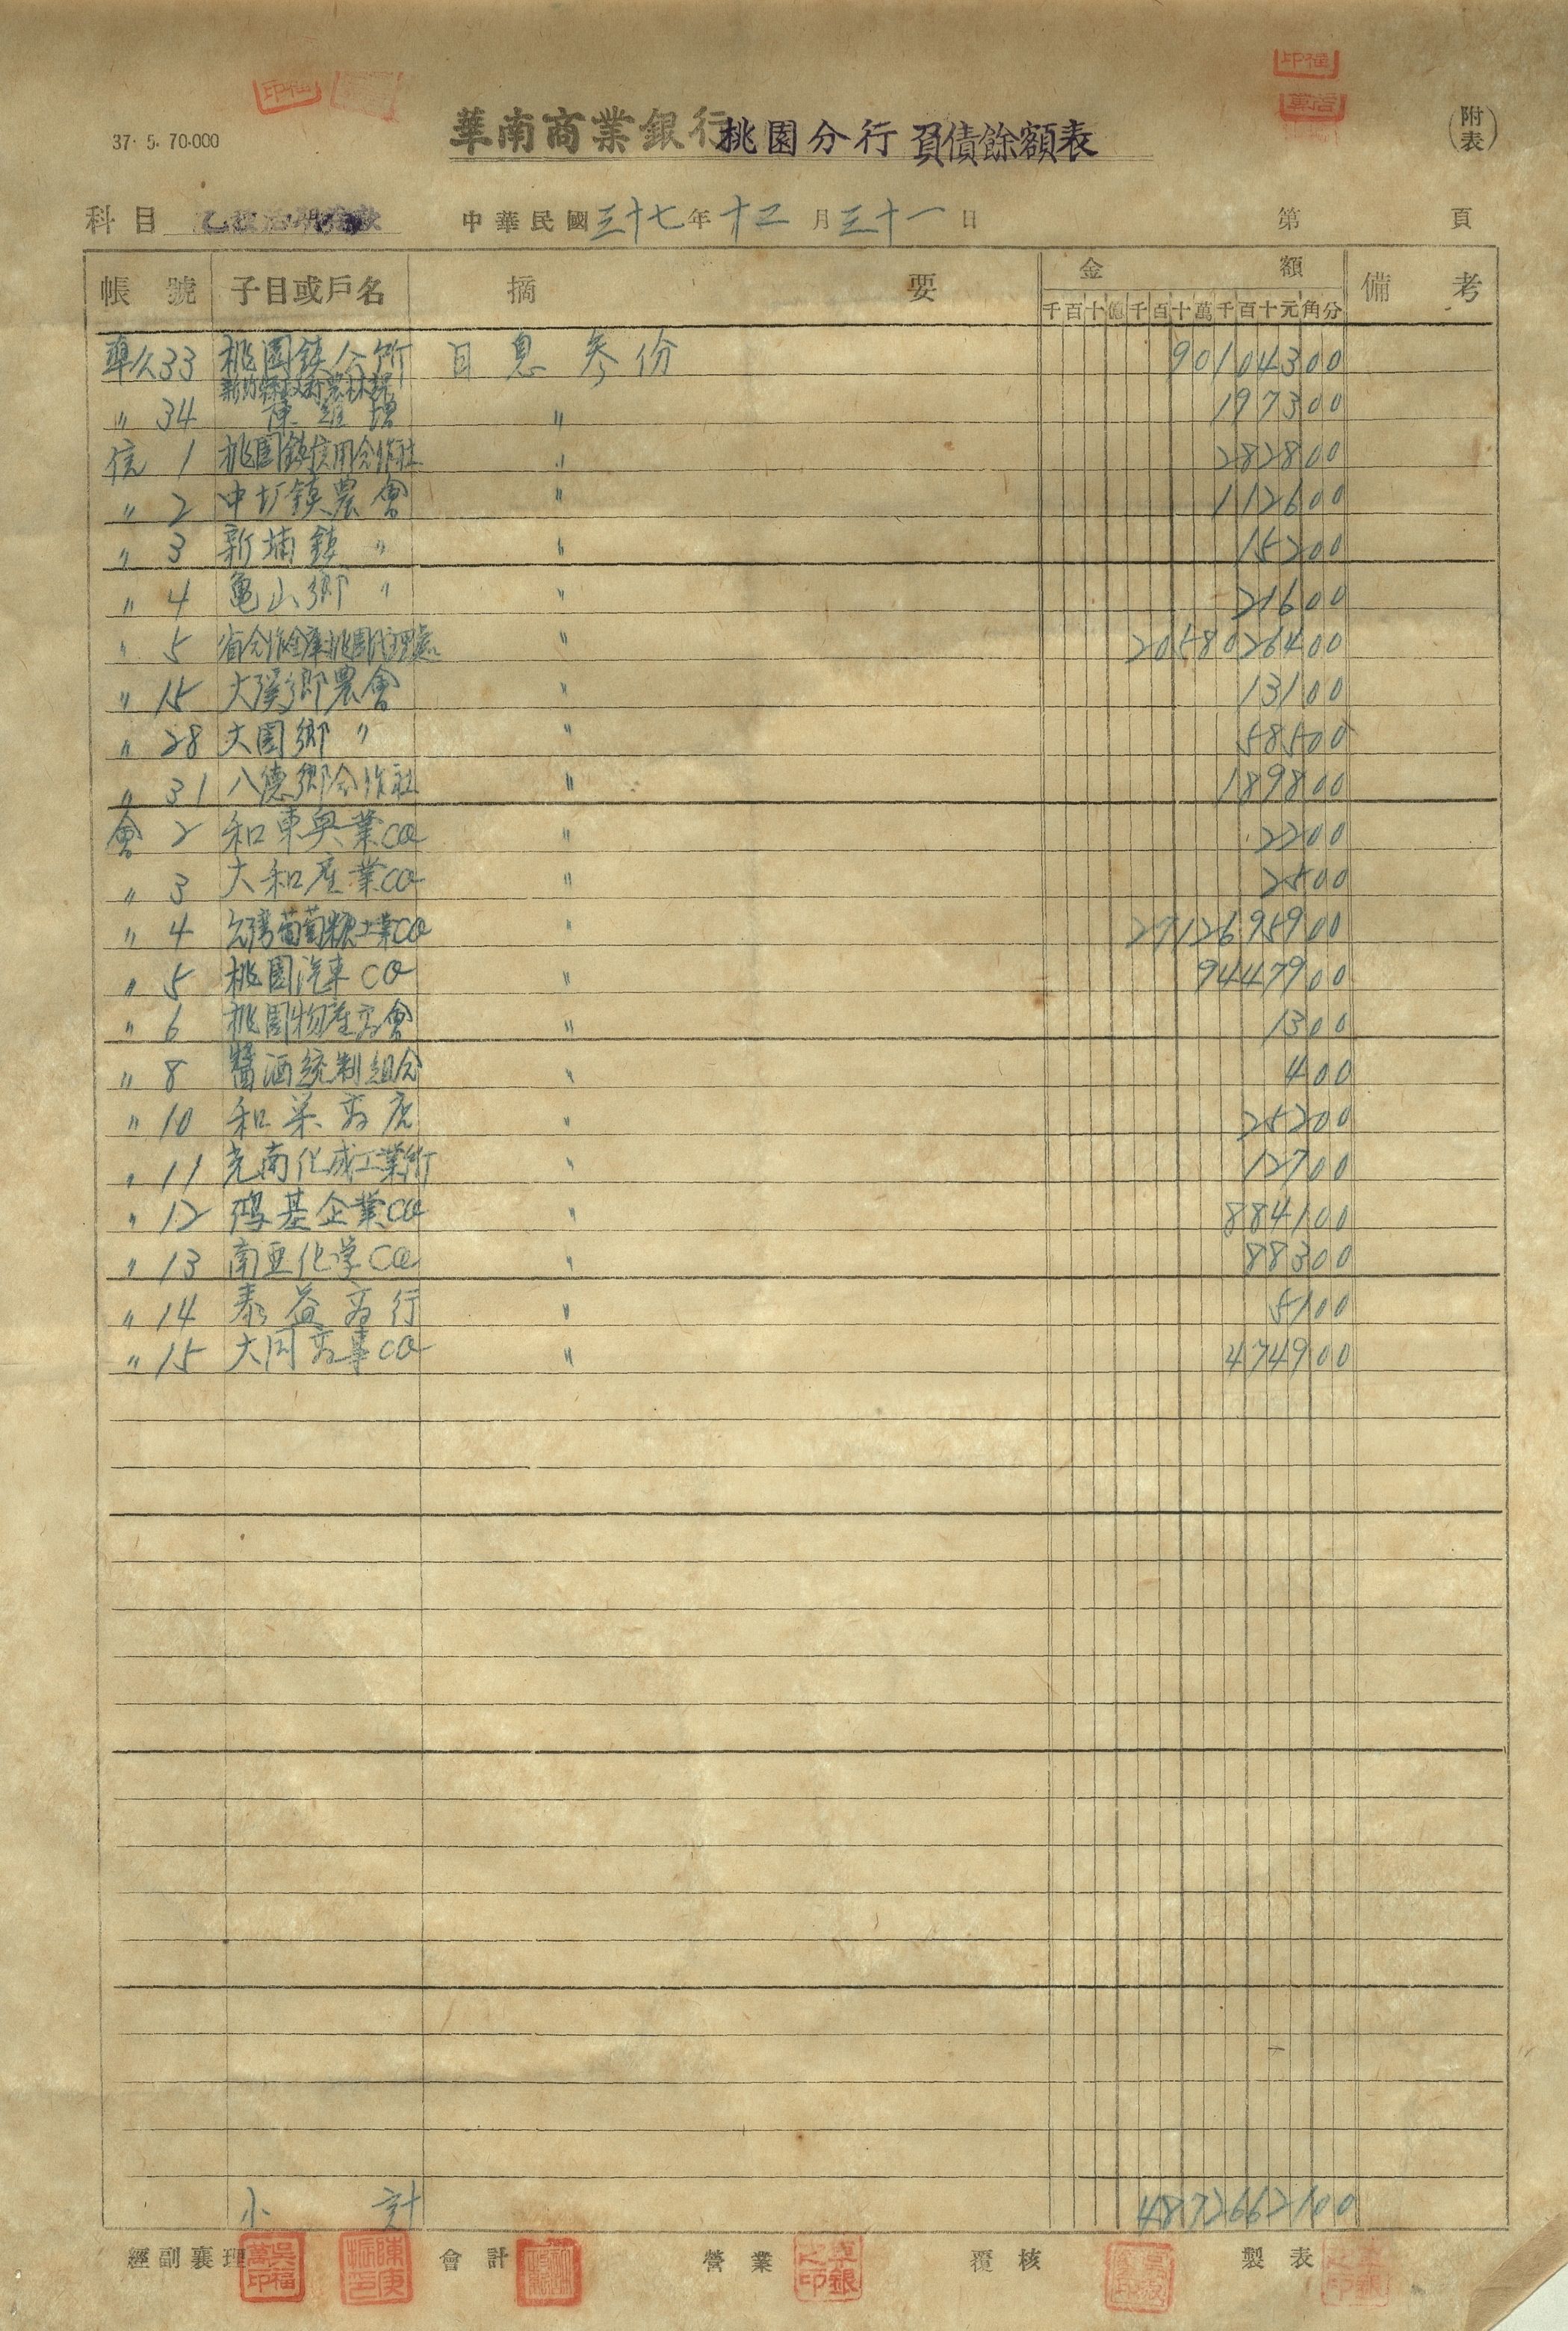 37. 5. 70.000
華南商業銀行桃園分行負債餘額表
(附表)
科目 乙種活期存款 中華民國三十七年十二月三十一日 第 頁
帳號 子目或戶名 摘要 金額 備考
千百十億千百十萬千百十元角分
準公33 桃園鎮公所 日息參份 90104300
新竹縣政府農林課
〃 34 陳 增 〃 197300
信 1 桃園鎮信用合作社 〃 282800
〃 2 中圹鎮農會 〃 112600
〃 3 新埔鎮 〃 〃 15200
〃 4 亀山鄉 〃 〃 21600
〃 5 省合作金庫桃園代理處 〃 2058026400
〃 15 大溪鄉農會 〃 13100
〃 28 大園鄉 〃 〃 58500
〃 31 八德鄉合作社 〃 189800
會 2 和東興業CO 〃 2200
〃 3 大和産業CO 〃 2500
〃 4 台湾葡萄糖工業CO 〃 2712695900
〃 5 桃園汽車CO 〃 9447900
〃 6 桃園物産商會 〃 1300
〃 8 醬酒統制組合 〃 400
〃 10 和栄商店 〃 25200
〃 11 光南化成工業所 〃 12700
〃 12 鴻基企業CO 〃 884100
〃 13 南亜化学CO 〃 88300
〃 14 泰益商行 〃 5100
〃 15 大同商事CO 〃 474900
小計 4872662100
經副襄理 會計 營業 覆核 製表
吳福萬印